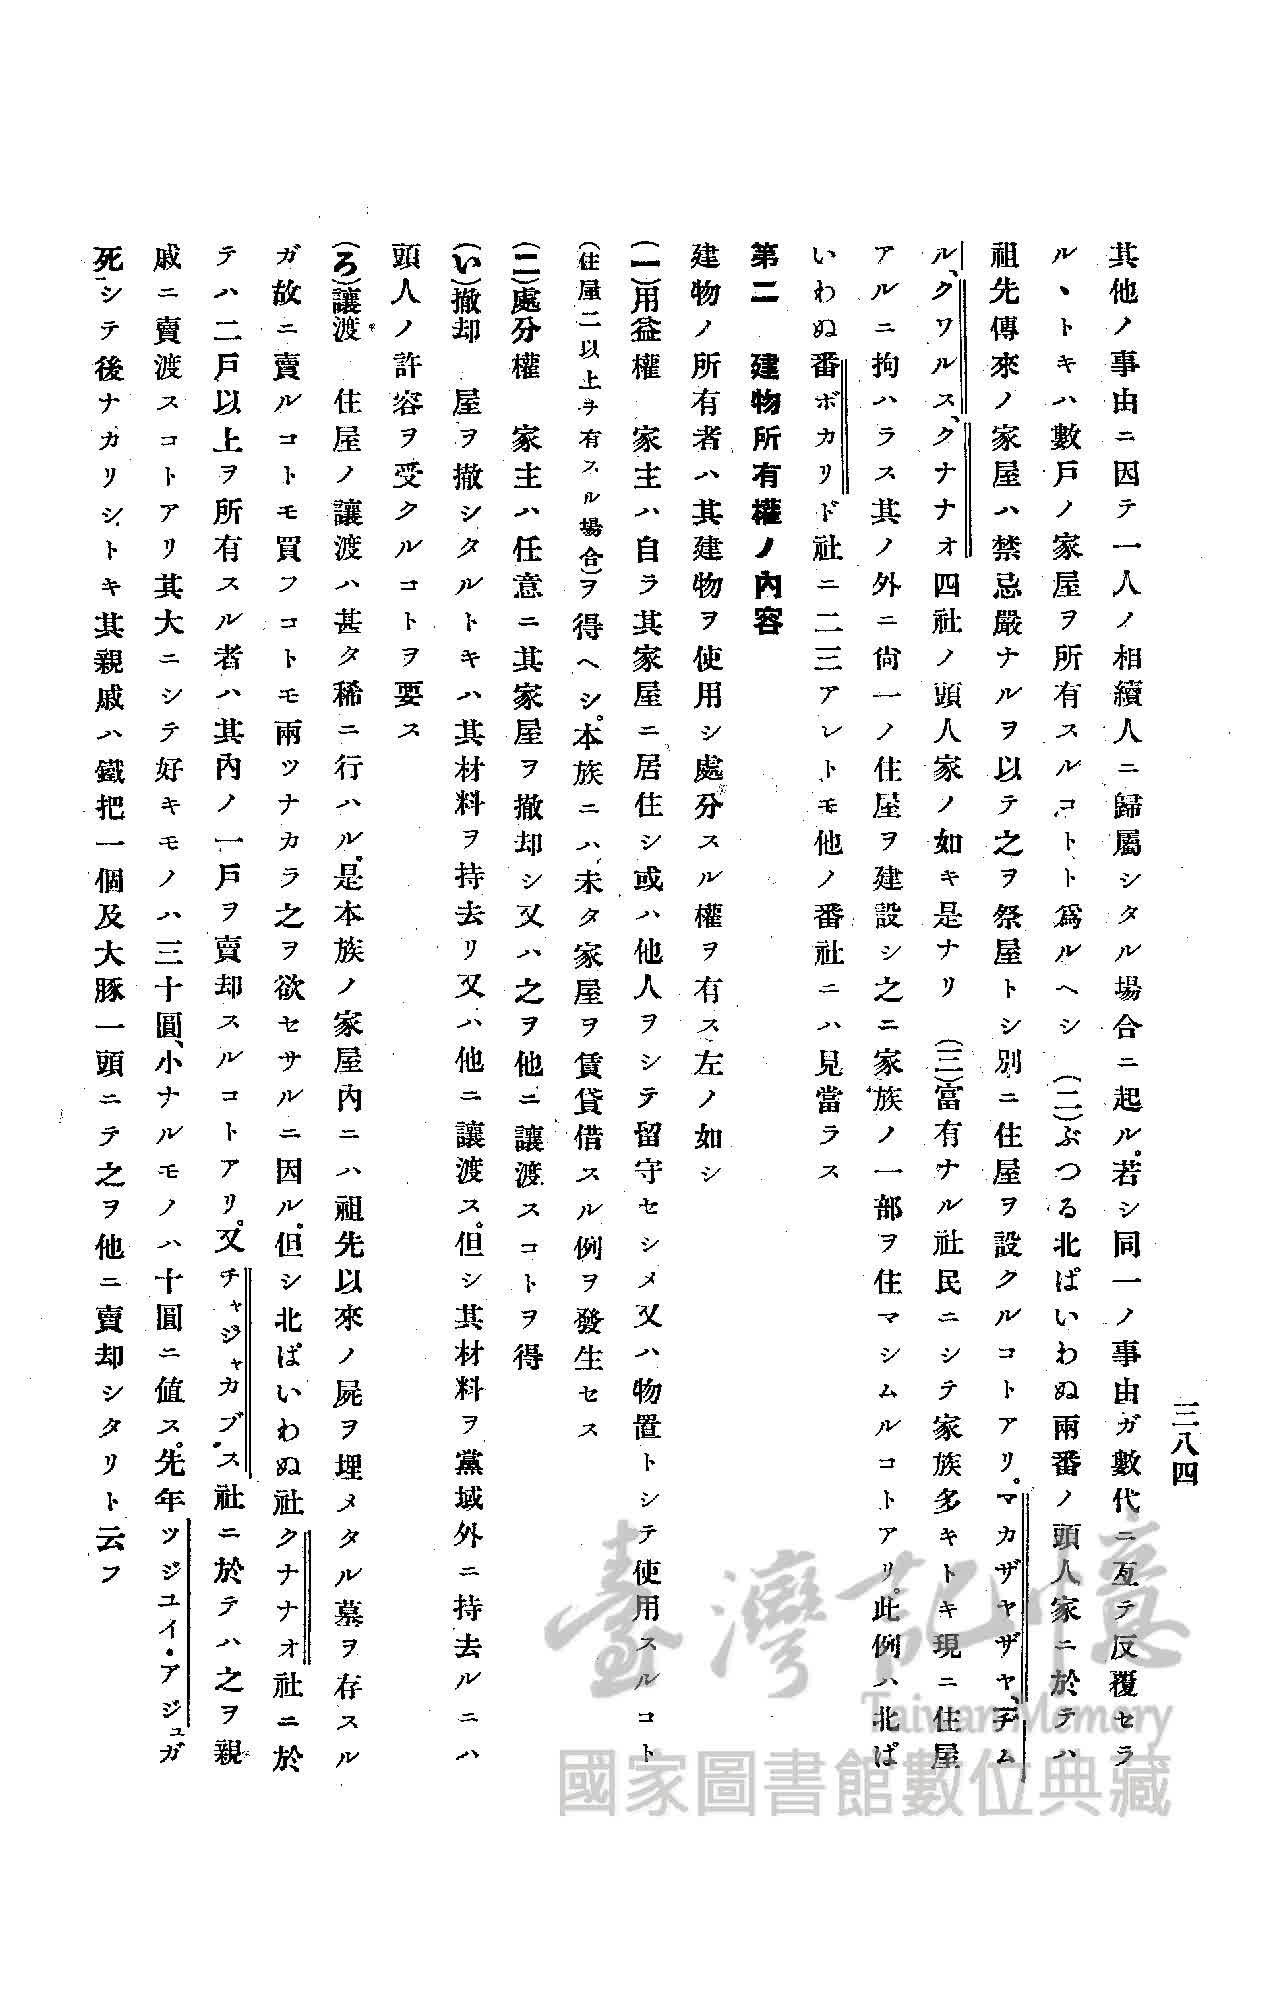 三八四
其他ノ事由ニ因テ一人ノ相續人ニ歸屬シタル場合ニ起ル。若シ同一ノ事由ガ數代ニ亙テ反覆セラ
ルヽトキハ數戸ノ家屋ヲ所有スルコトト爲ルヘシ (二)ぶつる北ぱいわぬ兩番ノ頭人家ニ於テハ
祖先傳來ノ家屋ハ禁忌嚴ナルヲ以テ之ヲ祭屋トシ別ニ住屋ヲ設クルコトアリ。マカザヤザヤ、チム
ル、クワルス、クナナオ四社ノ頭人家ノ如キ是ナリ (三)富有ナル社民ニシテ家族多キトキ現ニ住屋
アルニ拘ハラス其ノ外ニ尙一ノ住屋ヲ建設シ之ニ家族ノ一部ヲ住マシムルコトアリ。此例ハ北ぱ
いわぬ番ボカリド社ニ二三アレトモ他ノ番社ニハ見當ラス
第二 建物所有權ノ內容
建物ノ所有者ハ其建物ヲ使用シ處分スル權ヲ有ス左ノ如シ
(一)用益權 家主ハ自ラ其家屋ニ居住シ或ハ他人ヲシテ留守セシメ又ハ物置トシテ使用スルコト
(住屋二以上ヲ有スル場合)ヲ得ヘシ。本族ニハ未タ家屋ヲ賃貸借スル例ヲ發生セス
(二)處分權 家主ハ任意ニ其家屋ヲ撤却シ又ハ之ヲ他ニ讓渡スコトヲ得
(い)撤却 屋ヲ撤シタルトキハ其材料ヲ持去リ又ハ他ニ讓渡ス。但シ其材料ヲ黨域外ニ持去ルニハ
頭人ノ許容ヲ受クルコトヲ要ス
(ろ)讓渡 住屋ノ讓渡ハ甚タ稀ニ行ハル。是本族ノ家屋內ニハ祖先以來ノ屍ヲ埋メタル墓ヲ存スル
ガ故ニ賣ルコトモ買フコトモ兩ツナカラ之ヲ欲セサルニ因ル。但シ北ぱいわぬ社クナナオ社ニ於
テハ二戸以上ヲ所有スル者ハ其內ノ一戸ヲ賣却スルコトアリ。又チャジャカブス社ニ於テハ之ヲ親
戚ニ賣渡スコトアリ其大ニシテ好キモノハ三十圓、小ナルモノハ十圓ニ値ス。先年ツジユイ・アジュガ
死シテ後ナカリシトキ其親戚ハ鐵把一個及大豚一頭ニテ之ヲ他ニ賣却シタリト云フ
臺灣記憶
Taiwan Memory
國家圖書館數位典藏